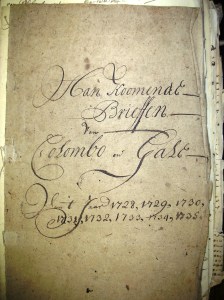 Aan Koomende
Brieffen
van
Colombo en Gale
Zijt Anno 1728, 1729, 1730,
1731, 1732, 1733, 1734, 1735.